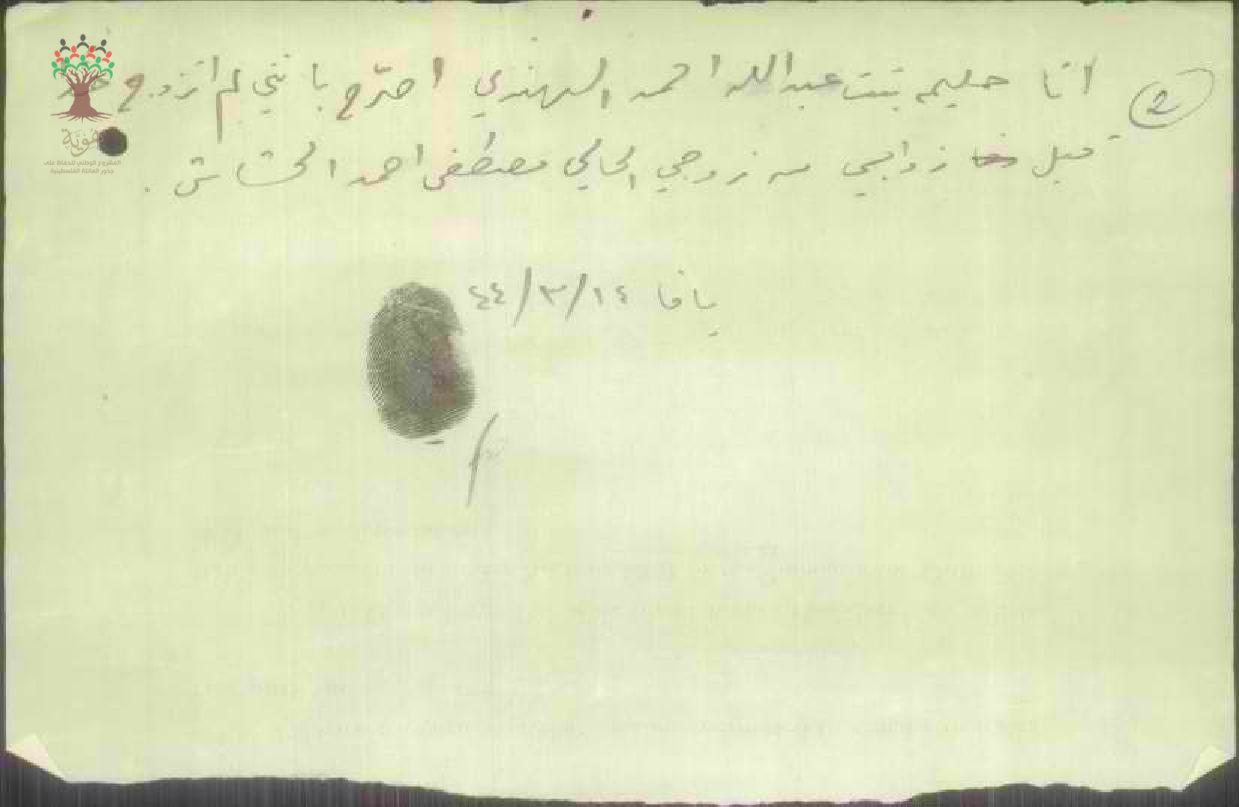 2
انا حليمه بنت عبد الله احمد الهندي اصرّح با نني لم اتزوج
قبل زواجي من زوجي الحالي مصطفى احمد الخشاش .
يافا ١٤/٣/٤٤
هُويَّة
المشروع الوطني للحفاظ على
جذور العائلة الفلسطينية